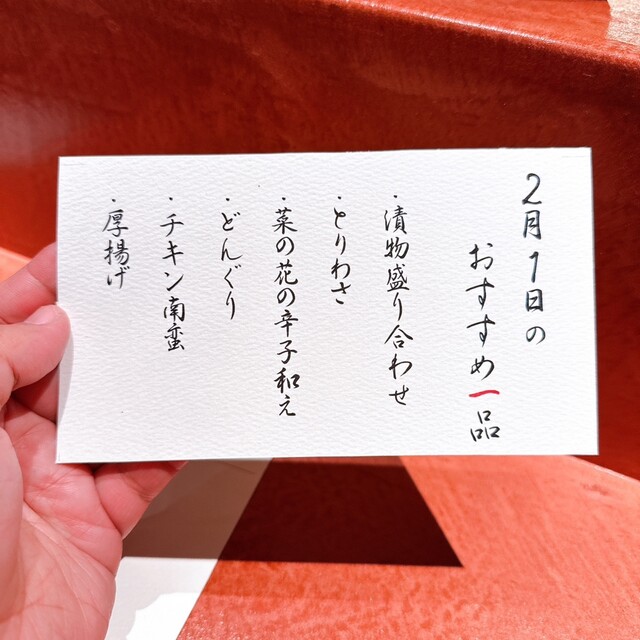 2月1日の
おすすめ一品
・漬物盛り合わせ
・とりわさ
・菜の花の辛子和え
・どんぐり
・チキン南蛮
・厚揚げ